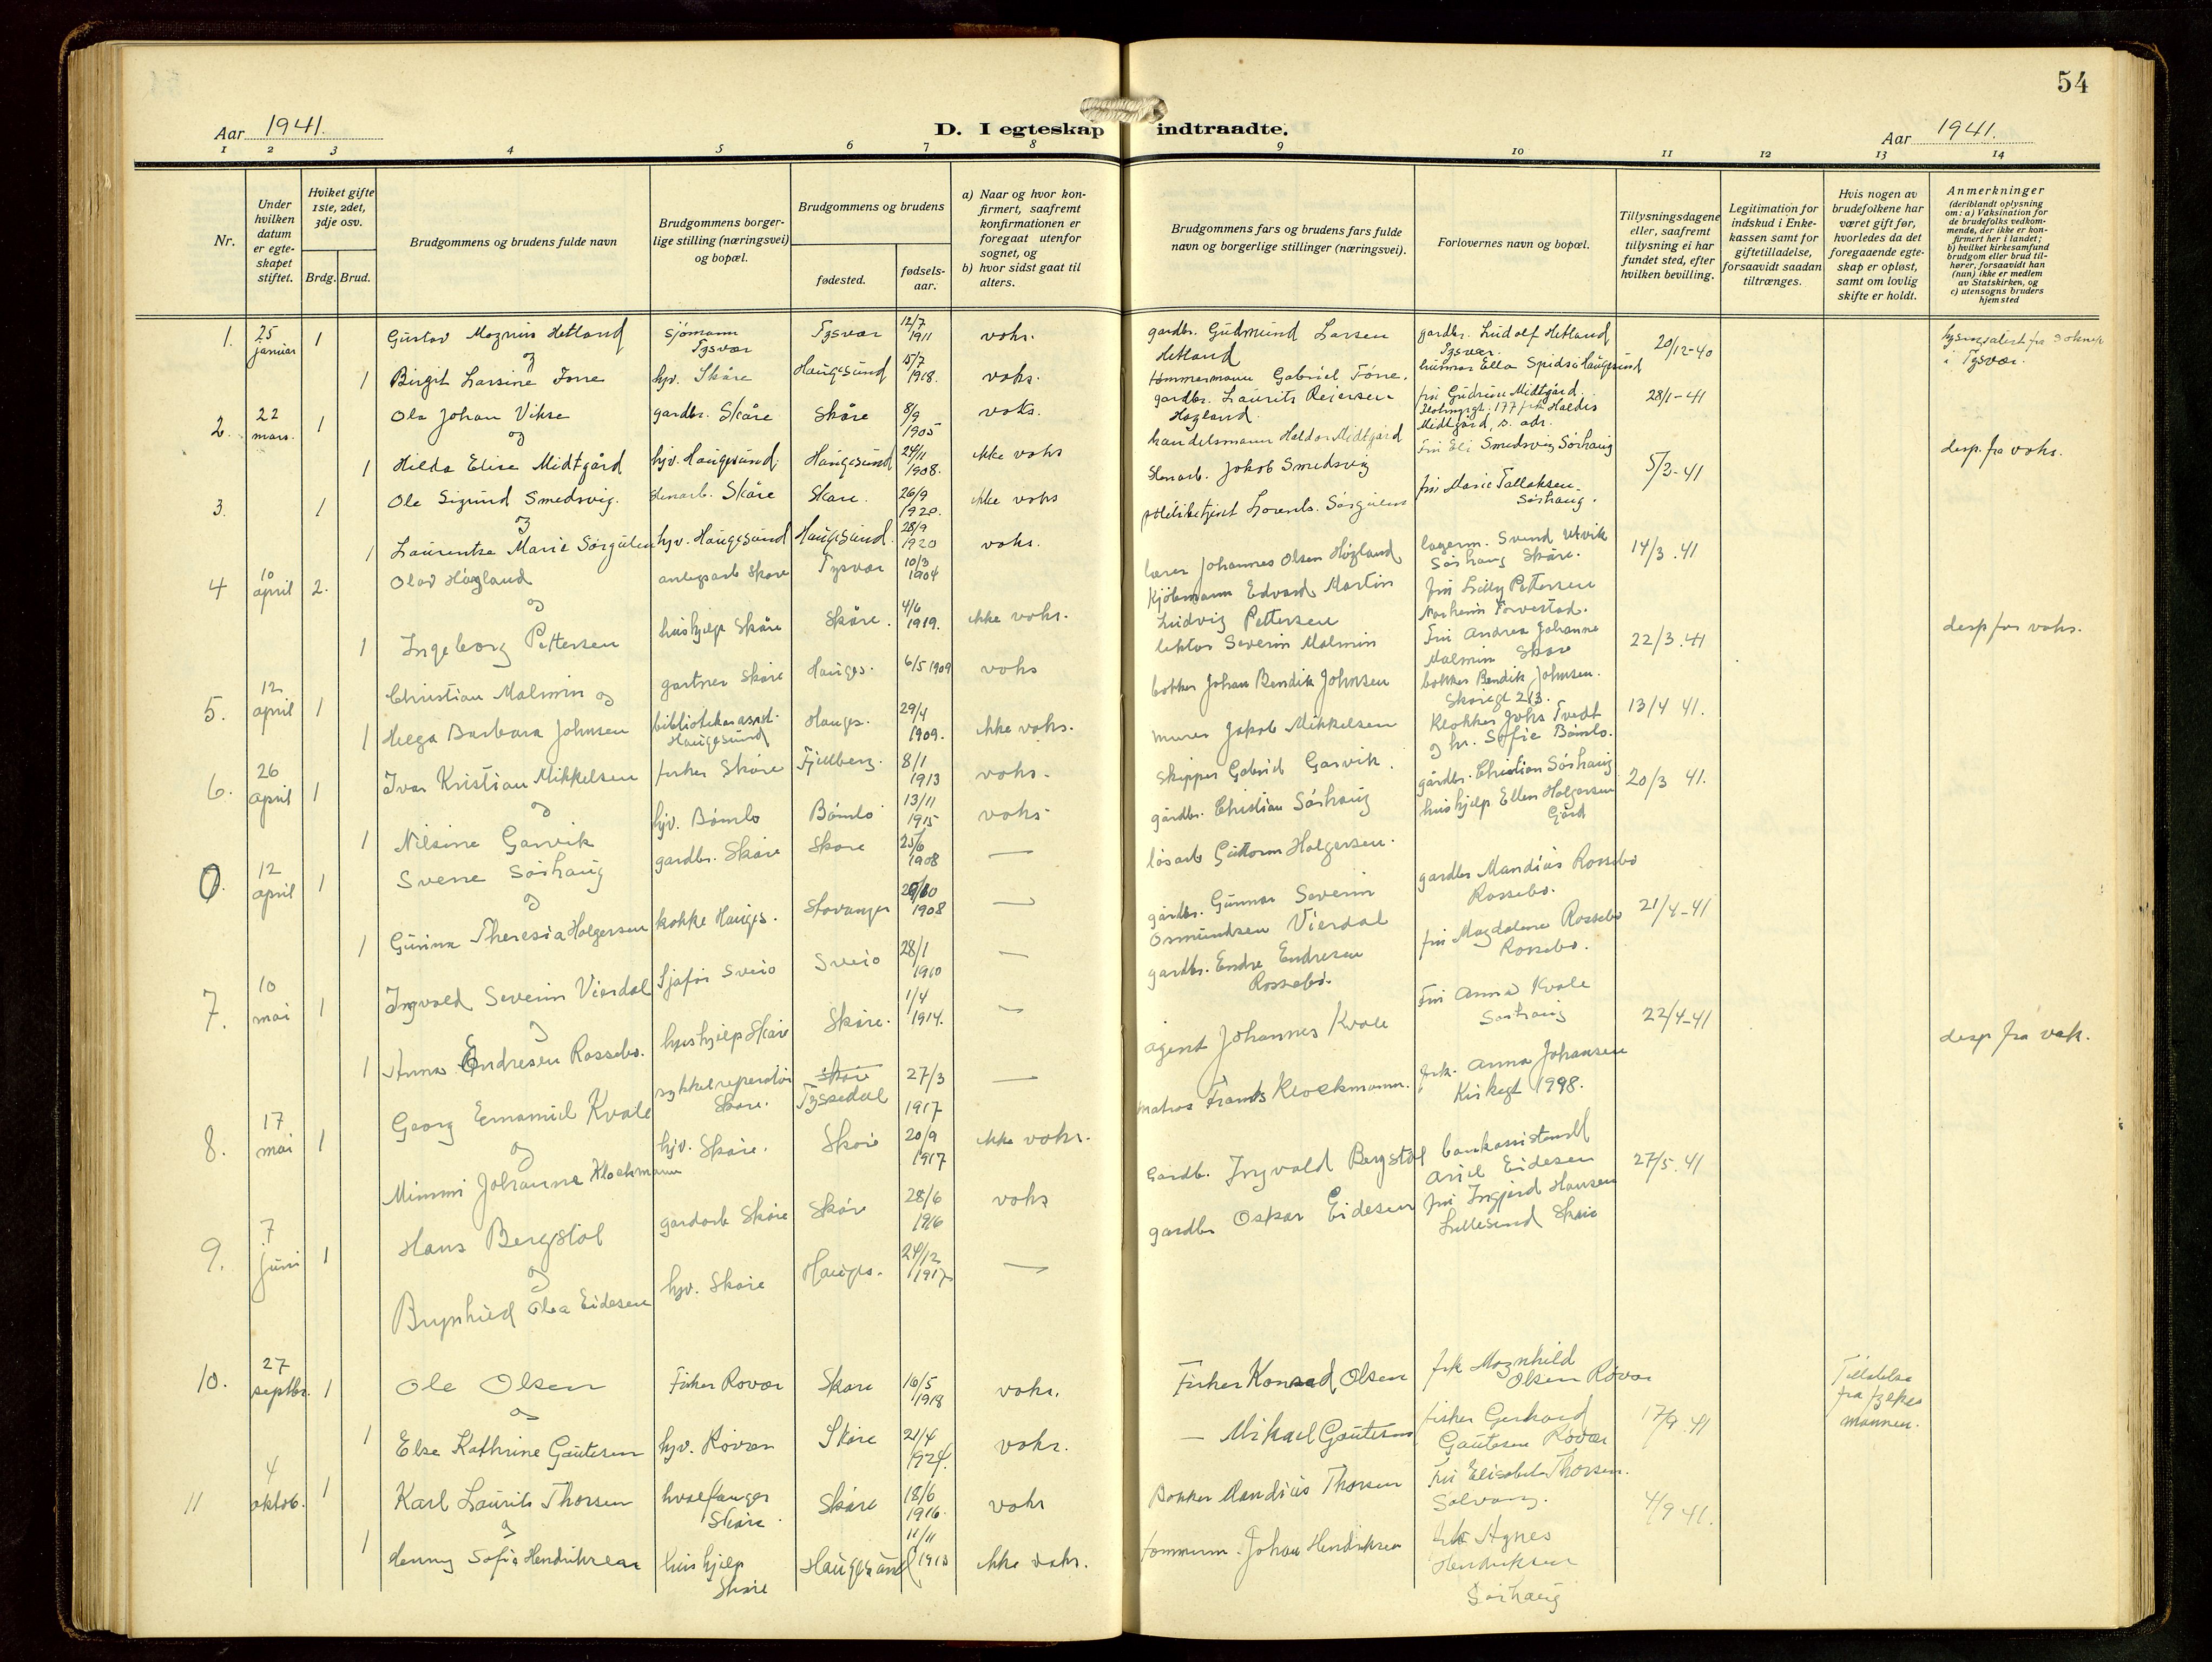 54
Aar 1941.
D. I egteskap indtraadte.
Aar 1941.
1 2 3 4 5 6 7 8 9 10 11 12 13 14
Nr.
Under hvilken datum er egteskapet stiftet.
Hviket gifte 1ste, 2det, 3dje osv.
Brdg. Brud.
Brudgommens og brudens fulde navn
Brudgommens borgerlige stilling (næringsvei) og bopæl.
Brudgommens og brudens
fødested.
fødselsaar.
a) Naar og hvor konfirmert, saafremt konfirmationen er foregaat utenfor sognet, og
b) hvor sidst gaat til alters.
Brudgommens fars og brudens fars fulde navn og borgerlige stillinger (næringsvei).
Forlovernes navn og bopæl.
Tillysningsdagene eller, saafremt tillysning ei har fundet sted, efter hvilken bevilling.
Legitimation for indskud i Enkekassen samt for giftetilladelse, forsaavidt saadan tiltrænges.
Hvis nogen av brudefolkene har været gift før, hvorledes da det foregaaende egteskap er opløst, samt om lovlig skifte er holdt.
Anmerkninger
(deriblandt oplysning om: a) Vaksination for de brudefolks vedkommende, der ikke er konfirmert her i landet; b) hvilket kirkesamfund brudgom eller brud tilhører, forsaavidt han (nun) ikke er medlem av Statskirken, og c) utensogns bruders hjemsted
1. 25 januar 1 Gustav Magnus Hetland sjömann Tysvær Tysvær 12/7 1911 vohs. gardbr. Gudmund Larsen Hetland gardbr. Ludolf Hetland Tysvær. 20/12-40
i Tysvær.
og
1 Birgit Larsine Förre hjv. Skåre Haugesund 15/7 1918. vohs. tømmermann Gabriel Förre. Ella Haugesund
2. 22 mars. 1 Ola Johan Vikse gardbr. Skåre Skåre 8/9 1905 vohs. gardbr. Laurits Reiersen Hagland fru Gudrun Midtgård, 177 frk Haldis Midtgård, s. adr. 28/1-41
og
1 Hilda Elise Midtgård hjv. Haugesund. Haugesund 24/11 1908. ikke vohs handelsmann Haldor Midtgård
3. 1 Ole Sigund Smedsvig. stenarb. Skåre Skåre. 26/9 1920. ikke vohs stenarb. Jakob Smedsvig Fru Eli Smedsvig Sörhaug 5/3-41 desp. fra vohs.
og
1 Laurentze Marie Sörgulen hjv. Haugesund Haugesund. 28/9 1920 vohs. Lorents. Sörgulen fru Marie Tallaksen Sörhaug.
4 10 april 2. Olav Högland anlegsarb Skåre Tysvær 10/3 1904 lærer Johannes Olsen Högland lagerm. Svend Utvik Sörhaug Skåre. 14/3.41
og
1 Ingeborg Pettersen hushjelp Skåre Skåre. 4/6 1919. ikke vohs. Kjöbmann Edvard Martin Ludvig Pettersen fru Lilly Pettersen Norheim Torvestad. desp for vohs.
5. 12 april 1 Christian Malmin og gartner Skåre Hauges. 6/5 1909 vohs lektor Severin Malmin Fru Andrea Johanne Malmin Skåre 22/3.41
1 Helga Barbara Johnsen bibliotekarassist. Haugesund Hauges. 29/4 1909. ikke vohs. bøkker Johan Bendik Johnsen bøkker Bendik Johnsen. Skåregt 213.
6. 26 april 1 Ivar Kristian Mikkelsen fisker Skåre Fjellberg. 8/1 1913 vohs. murer Jakob Mikkelsen Klokker Johs Tvedt og hr. Sofie Bömlo. 13/4 41.
og
1 Nilsine Garvik hjv. Bömlo Bömlo 13/11 1915 vohs skipper Gabriel Garvik.
0. 12 april 1 Sverre Sörhaug gardbr. Skåre Skåre 25/6 1908 — gårdbr. Christian Sörhaug gårdbr. Christian Sörhaug 20/3 41.
og
1 Gurina Theresia Holgersen kokke Hauges. Stavanger 1908 — lösarb Guttorm Holgersen. hushjelp Ellen Holgersen Gård
7. 10 mai 1 Ingvald Severin Vierdal Sjåför Sveio Sveio 28/1 1910 — gårdbr. Gunnar Severin Osmundsen Vierdal gardbr Mandius Rossebö Rossebö. 21/4-41
og
1 Anna Endresen Rossebö. hushjelp Skåre Skåre. 1/4 1914. — gardbr. Endre Endresen Rossebö. fru Magdalena Rossebö Rossebö.
8. 17 mai 1 Georg Emanuel Kvale sykkelreperatör Skåre. Skåre Tyssedal 27/3 1917 — agent Johannes Kvale Fru Anna Kvale Sörhaug 22/4-41
og
1 Mimmi Johanne Klockmann hjv. Skåre. Skåre 20/9 1917 ikke vohs. matros Frants Klockmann. frk. Anna Johansen Kirkegt 1998. desp fra vak.
9. 7 juni 1 Hans Bergstöl gardarb Skåre Skåre 28/6 1916 vohs Gardb. Ingvald Bergstöl bankassistent Ariel Eidesen 27/5.41
og
Brynhild Olea Eidesen hjv. Skåre Hauges. 24/12 1917 — gardbr Oskar Eidesen fru Ingjerd Hansen Lillesund Skåre
10. 27 septbr. 1 Ole Olsen Fisker Rövær Skåre 16/5 1918 vohs. Fisker Konrad Olsen frk Magnhild Olsen Rövær 17/9.41 Tillatelse fra fylkesmannen.
og
1 Else Kathrine Gautesen hjv. Rövær Skåre 21/4 1924. vohs. — Mikael Gautesen fisker Gerhard Gautesen Rövær
11 4 oktob. 1 Karl Laurits Thorsen hvalfanger Skåre Skåre 18/6 1916. vohs Bøkker Mandius Thorsen fru Elisabet Thorsen. Solvang. 4/9 41.
og
1 Henny Sofie Hendriksen hushjelp Skåre Haugesund 11/11 1913 ikke vohs. tømmerm. Johan Hendriksen frk Agnes Hendriksen Sörhaug